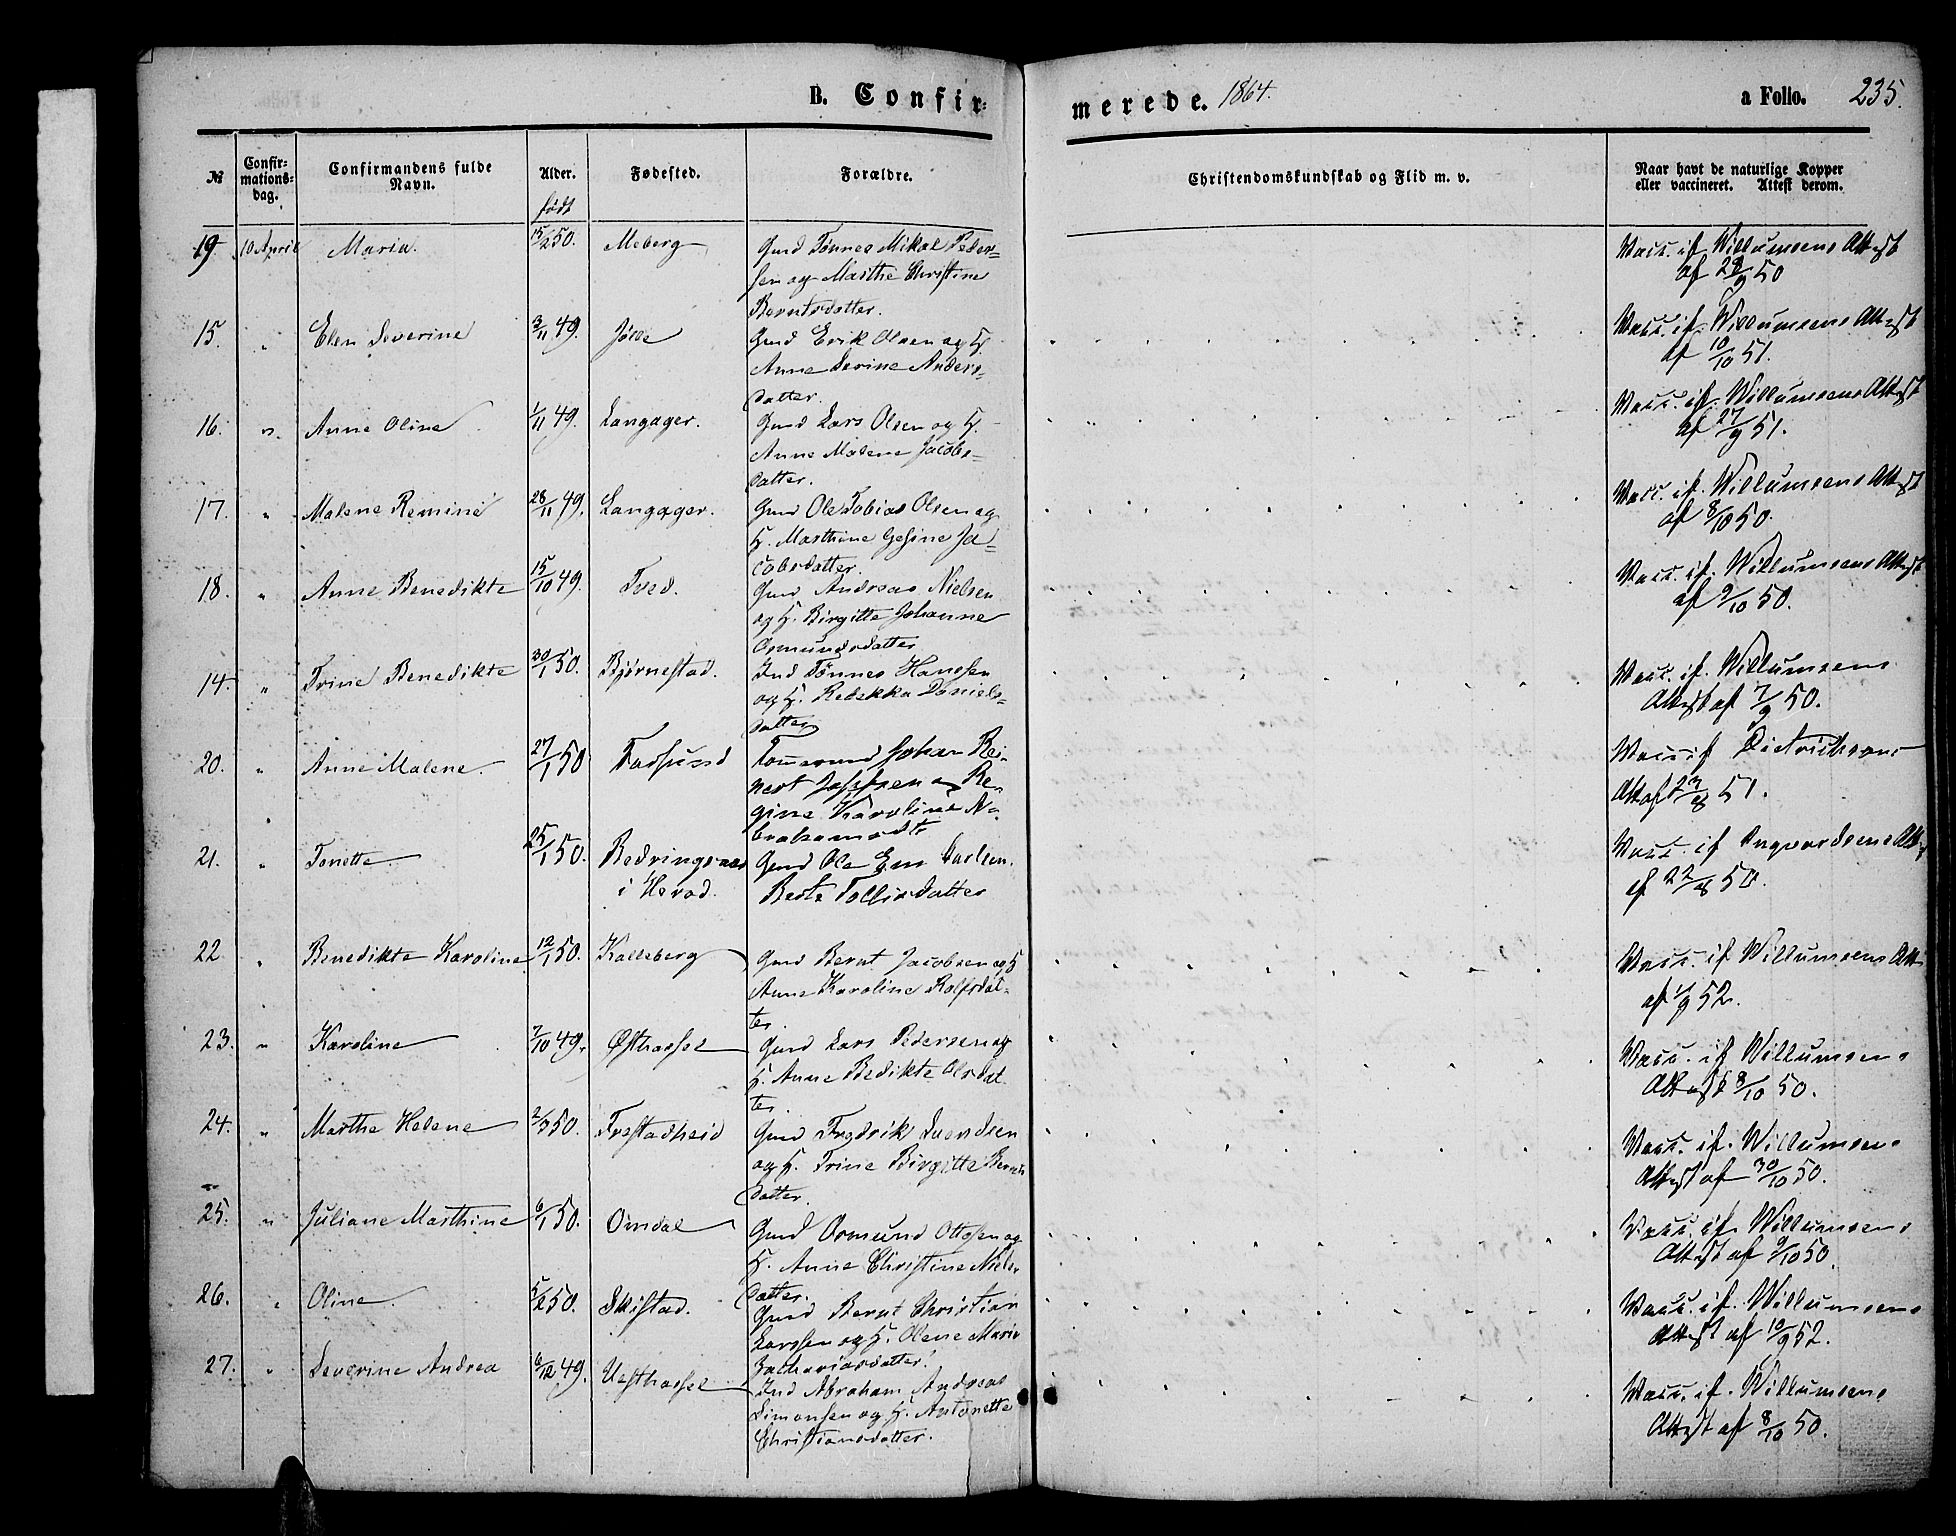 B. Confir=
merede. 1864.
a Folio. 235.
№
Confir=
mations=
dag.
Confirmandens fulde
Navn.
Alder.
født
Fødested.
Forældre.
Christendomskundskab og Flid m. v.
Naar havt de naturlige Kopper
eller vaccineret. Attest derom.
19 10 April Maria. 15/2 50. Meberg Gmd Tønnes Mikal Peder=
sen og Marthe Christine
Berntsdatter.
Vacc. if. Willumsens Attest
af 28/9 50
15. " Elen Severine 3/11 49. Jølle Gmd Erik Olsen og H.
Anne Serine Anders=
datter.
Vacc. if. Willumsens Attest
af 10/10 51.
16. " Anne Oline 1/11 49. Langager. Gmd Lars Olsen og H.
Anne Malene Jacobs=
datter.
Vacc. if. Willumsens Attest
af 27/9 51.
17. " Malene Remine 28/11 49. Langager. Gmd Ole Tobias Olsen og
H. Marthine Gesine Ja=
cobsdatter.
Vacc. if. Willumsens Attest
af 8/10 50.
18. " Anne Benedikte 15/10 49. Tved. Gmd Andreas Nielsen
og H. Birgitte Johanne
Osmundsdatter
Vacc. if. Willumsens Attest
af 2/10 50.
14. " Trine Benedikte 30/1 50. Bjørnestad. Ind Tønnes Hansen
og H. Rebekka Daniels=
datter
Vacc. if. Willumsens
Attest af 7/9 50.
20. " Anne Malene. 27/1 50 Farsund Tømmermd Johan Rei=
nert Jossen og Re=
gine Karoline A=
brahamsdt
Vacc if Dietrichsons
Att af 23/8 51.
21. " Tonette 25/1 50. Redringsnæs
i Herad.
Gmd Ole Em Carlsen.
Berte Tollisdatter
Vacc. if Ingvardsens Att
af 22/8 50.
22 " Benedikte Karoline 12/1 50. Kalleberg Gmd Bernt Jacobsen og H
Anne Karoline Rolfsdat=
ter.
Vacc. if Willumsens Att
af 1/9 52.
23. " Karoline 7/10 49. Østhassel Gmd Lars Pedersen og
H. Anne Bedikte Olsdat=
ter.
Vacc. if Willumsens
Attest 8/10 50.
24. " Marthe Helene 2/3 50. Frestadheid Gmd Fredrik Svendsen
og H. Trine Birgitte Bernts
datter.
Vacc. if. Willumsens
Attest af 30/10 50.
25. " Juliane Marthine 6/1 50. Omdal Gmd Osmund Ottosen og
H. Anne Christine Niels=
datter.
Vacc. if. Willumsens
Attest af 9/10 50.
26. " Oline. 5/2 50. Skistad. Gmd Bernt Christian
Larssen og H. Olene Marie
Zachariasdatter.
Vacc. if. Willumsens
Attest af 10/9 52.
27. " Severine Andrea 6/12 49. Vesthassel Ind Abraham Andreas
Simonsen og H. Antonette
Christiansdatter.
Vacc. if. Willumsens
Attest af 8/10 50.